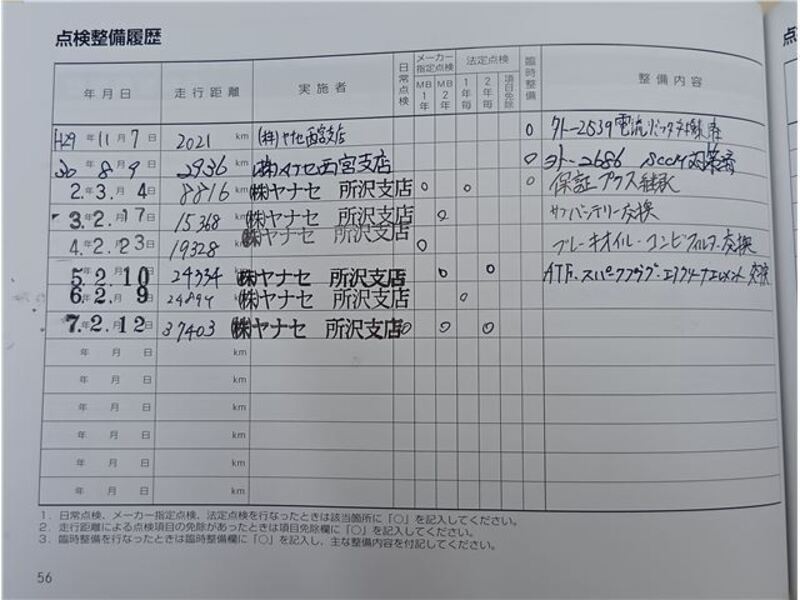 点検整備履歴
年月日 走行距離 実施者 日常点検 メーカー指定点検 MB1年 MB2年 法定点検 1年毎 2年毎 項目免除 臨時整備 整備内容
H29年11月7日 2021km (株)ヤナセ西宮支店 ○
30年8月9日 2936km (株)ヤナセ西宮支店 ○
2.年3.月4日 8816km (株)ヤナセ 所沢支店 ○ ○ ○ 保証プラス継承
3.年2.月17日 15368km (株)ヤナセ 所沢支店 ○ サブバッテリー交換
4.年2.月23日 19328km (株)ヤナセ 所沢支店 ○ ブレーキオイル・コンビフィルター交換
5.年2.月10日 24334km (株)ヤナセ 所沢支店 ○ ○ ATF.スパークプラグ・エアクリーナエレメント 交換
6.年2.月9日 km (株)ヤナセ 所沢支店 ○
7.年2.月12日 37403km (株)ヤナセ 所沢支店 ○ ○ ○
年 月 日 km
年 月 日 km
年 月 日 km
年 月 日 km
年 月 日 km
年 月 日 km
1. 日常点検、メーカー指定点検、法定点検を行なったときは該当箇所に「○」を記入してください。
2. 走行距離による点検項目の免除があったときは項目免除欄に「○」を記入してください。
3. 臨時整備を行なったときは臨時整備欄に「○」を記入し、主な整備内容を付記してください。
56